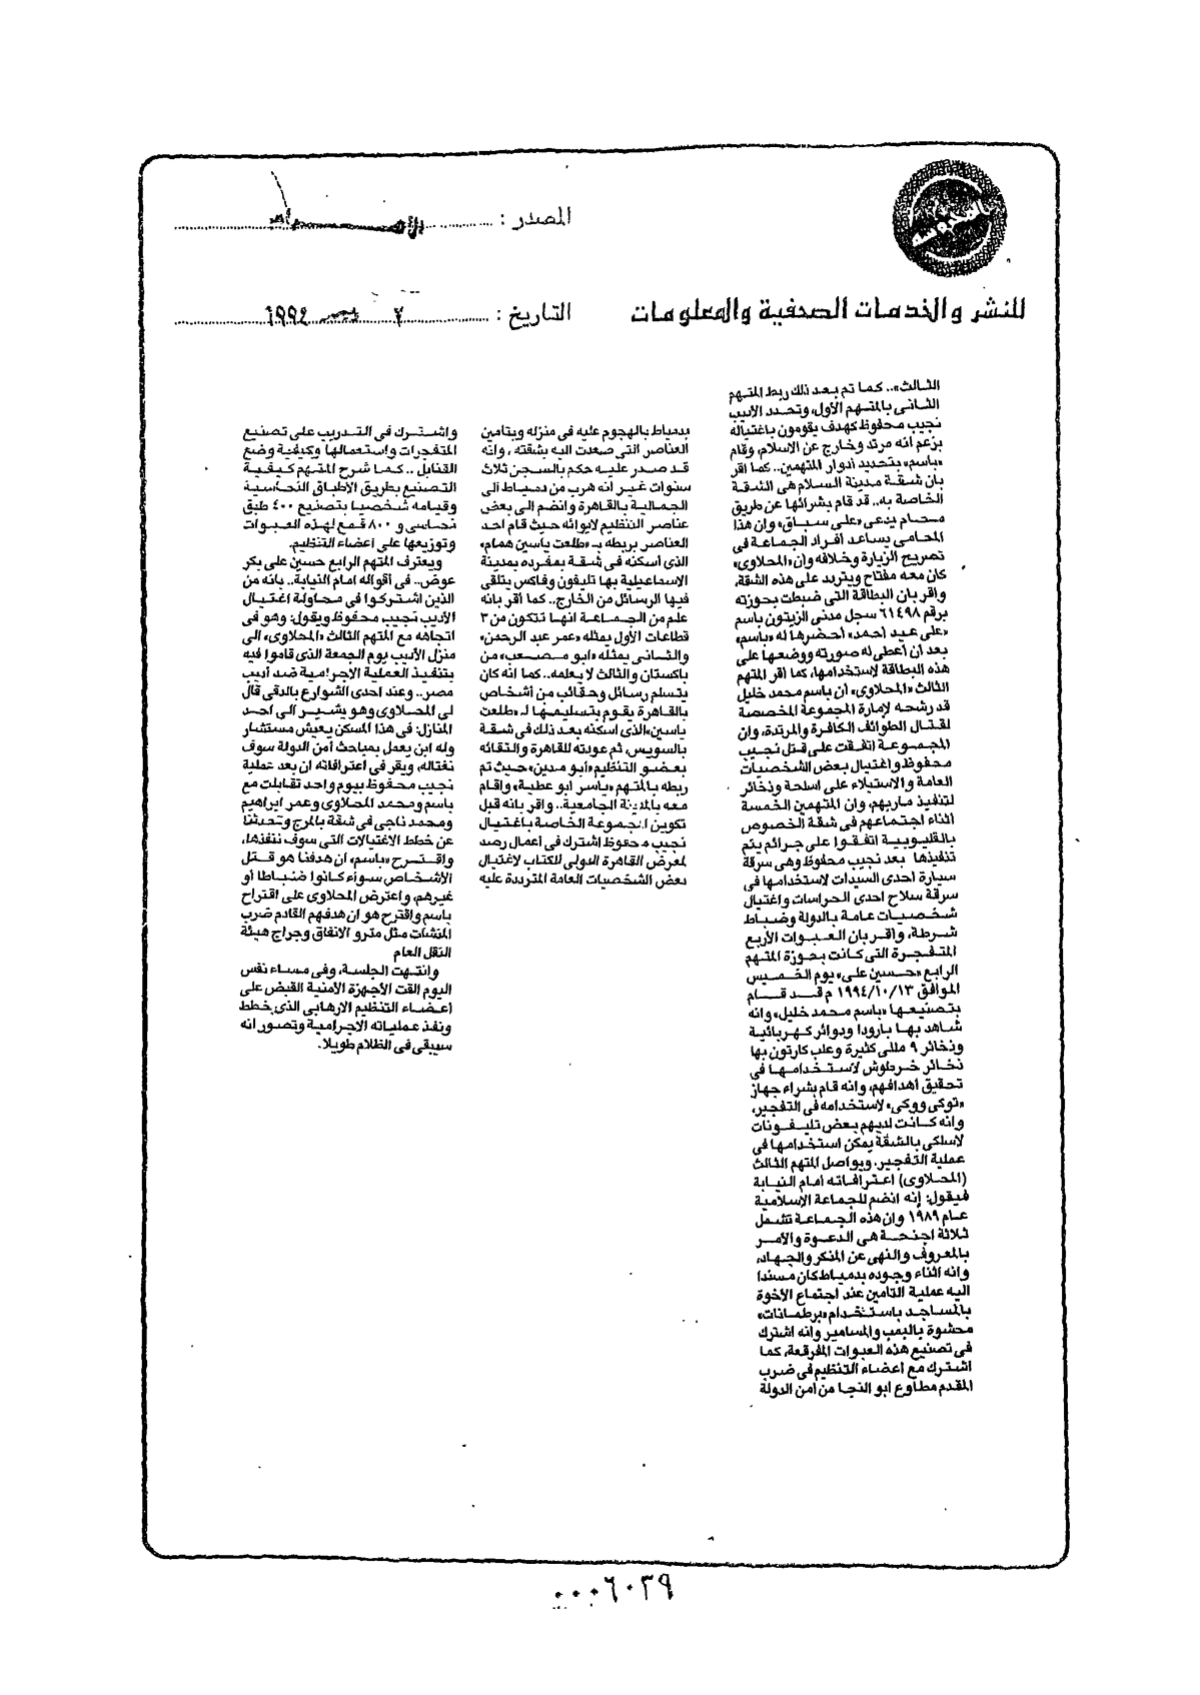 المصدر :
للنشر والخدمات الصحفية والمعلومات
التاريخ : ٧ ديسمبر ١٩٩٤
الثالث».. كما تم بعد ذلك ربط المتهم
الثانى بالمتهم الأول، وتحدد الأديب
نجيب محفوظ كهدف يقومون باغتياله
بزعم انه مرتد وخارج عن الاسلام، وقام
«باسم» بتحديد أدوار المتهمين.. كما اقر
بان شقة مدينة السلام هى الشقة
الخاصة به.. قد قام بشرائها عن طريق
محام يدعى «على سباق» وان هذا
المحامى يساعد أفراد الجماعة فى
تصريح الزيارة وخلافه وان «المحلاوى»
كان معه مفتاح ويتردد على هذه الشقة،
واقر بان البطاقة التى ضبطت بحوزته
برقم ٦١٤٩٨ سجل مدنى الزيتون باسم
«على عيد احمد» احضرها له «باسم»
بعد ان أعطى له صورته ووضعها على
هذه البطاقة لاستخدامها، كما اقر المتهم
الثالث «المحلاوى» ان باسم محمد خليل
قد رشحه لإمارة المجموعة المخصصة
لقتال الطوائف الكافرة والمرتدة، وان
المجموعة اتفقت على قتل نجيب
محفوظ واغتيال بعض الشخصيات
العامة والاستيلاء على اسلحة وذخائر
لتنفيذ ماربهم، وان المتهمين الخمسة
اثناء اجتماعهم فى شقة الخصوص
بالقليوبية اتفقوا على جرائم يتم
تنفيذها بعد نجيب محفوظ وهى سرقة
سيارة احدى السيدات لاستخدامها فى
سرقة سلاح احدى الحراسات واغتيال
شخصيات عامة بالدولة وضباط
شرطة، واقر بان العبوات الأربع
المتفجرة التى كانت بحوزة المتهم
الرابع «حسين على» يوم الخميس
الموافق ١٩٩٤/١٠/١٣ م قد قام
بتصنيعها «باسم محمد خليل» وانه
شاهد بها بارودا ودوائر كهربائية
وذخائر ٩ مللى كثيرة وعلب كارتون بها
ذخائر خرطوش لاستخدامها فى
تحقيق أهدافهم، وانه قام بشراء جهاز
«توكى ووكى» لاستخدامه فى التفجير،
وانه كانت لديهم بعض تليفونات
لاسلكى بالشقة يمكن استخدامها فى
عملية التفجير. ويواصل المتهم الثالث
(المحلاوى) اعترافاته امام النيابة
فيقول: إنه انضم للجماعة الإسلامية
عام ١٩٨٩ وان هذه الجماعة تشمل
ثلاثة اجنحة هى الدعوة والأمر
بالمعروف والنهى عن المنكر والجهاد،
وانه اثناء وجوده بدمياط كان مسندا
اليه عملية التامين عند اجتماع الأخوة
بالمساجد باستخدام «برطمانات»
محشوة بالبمب والمسامير وانه اشترك
فى تصنيع هذه العبوات المفرقعة، كما
اشترك مع اعضاء التنظيم فى ضرب
المقدم مطاوع ابو النجا من امن الدولة
بدمياط بالهجوم عليه فى منزله وبتامين
العناصر التى صعدت اليه بشقته ، وانه
قد صدر عليه حكم بالسجن ثلاث
سنوات غير انه هرب من دمياط الى
الجمالية بالقاهرة وانضم الى بعض
عناصر التنظيم لايوائه حيث قام احد
العناصر بربطه بـ «طلعت ياسين همام»
الذى أسكنه فى شقة بمفرده بمدينة
الاسماعيلية بها تليفون وفاكس يتلقى
فيها الرسائل من الخارج.. كما أقر بانه
علم من الجماعة انها تتكون من ٣
قطاعات الأول يمثله «عمر عبد الرحمن»
والثانى يمثله «ابو مصعب» من
باكستان والثالث لا يعلمه.. كما انه كان
يتسلم رسائل وحقائب من أشخاص
بالقاهرة يقوم بتسليمها لـ «طلعت
ياسين» الذى اسكنه بعد ذلك فى شقة
بالسويس، ثم عودته للقاهرة والتقائه
بعضو التنظيم «أبو مدين» حيث تم
ربطه بالمتهم «ياسر ابو عطية» واقام
معه بالمدينة الجامعية.. واقر بانه قبل
تكوين المجموعة الخاصة باغتيال
نجيب محفوظ اشترك فى اعمال رصد
لمعرض القاهرة الدولى للكتاب لاغتيال
بعض الشخصيات العامة المترددة عليه
واشترك فى التدريب على تصنيع
المتفجرات واستعمالها وكيفية وضع
القنابل .. كما شرح المتهم كيفية
التصنيع بطريق الأطباق النحاسية
وقيامه شخصيا بتصنيع ٤٠٠ طبق
نحاسى و ٨٠٠ قمع لهذه العبوات
وتوزيعها على أعضاء التنظيم.
ويعترف المتهم الرابع حسين على بكر
عوض.. فى أقواله امام النيابة.. بانه من
الذين اشتركوا فى محاولة اغتيال
الأديب نجيب محفوظ ويقول: وهو فى
اتجاهه مع المتهم الثالث «المحلاوى» الى
منزل الأديب يوم الجمعة الذى قاموا فيه
بتنفيذ العملية الإجرامية ضد أديب
مصر.. وعند احدى الشوارع بالدقى قال
لى المحلاوى وهو يشير الى احد
المنازل: فى هذا المسكن يعيش مستشار
وله ابن يعمل بمباحث أمن الدولة سوف
نغتاله، ويقر فى اعترافاته ان بعد عملية
نجيب محفوظ بيوم واحد تقابلت مع
باسم ومحمد المحلاوى وعمر ابراهيم
ومحمد ناجى فى شقة بالمرج وتحدثنا
عن خطط الاغتيالات التى سوف ننفذها،
واقترح «باسم» ان هدفنا هو قتل
الأشخاص سواء كانوا ضباطا أو
غيرهم، واعترض المحلاوى على اقتراح
باسم واقترح هو ان هدفهم القادم ضرب
المنشات مثل مترو الانفاق وجراج هيئة
النقل العام
وانتهت الجلسة، وفى مساء نفس
اليوم القت الأجهزة الأمنية القبض على
أعضاء التنظيم الارهابى الذى خطط
ونفذ عملياته الاجرامية وتصور انه
سيبقى فى الظلام طويلا.
٠٠٠٦٠٣٩